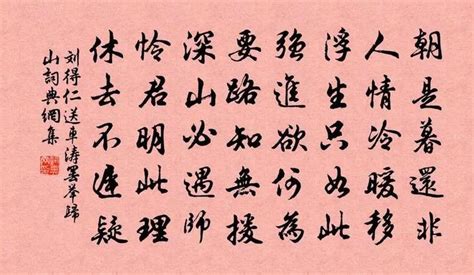 朝是暮還非
人情冷暖移
浮生只如此
強進欲何為
要路知無援
深山必遇師
怜君明此理
休去不遲疑
刘得仁送車涛罷举歸
山詞典網集